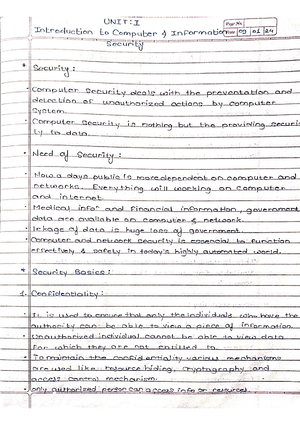 UNIT: I
Page No.
Introduction to Computer & Information
Date 09 01 24
Security
* Security:
• Computer Security deals with the prevantation and
detection of unauthorized actions by computer
System.
• Computer Security is nothing but the providing securi
ty to data.
• Need of Security:
• Now a days public is more dependent on computer and
networks. Everything will working on computer
and internet.
• Medical info^n and Financial information, government
data are available on computer & network.
• lekage of data is huge loss of government.
• Computer and network security is essencial to function
effectively & safety in today's highly automated world.
* Security Basics:
1. Confidentiality:
• It is used to ensure that only the individuals who have the
authority can be able to view a piece of information.
• Unauthorised individual cannot be able to view data
for which they are not entitled to.
• To maintain the confidentiality various mechanisms
are used like, resource hiding, cryptography and
access control mechanism.
• only authorized person can access info or resources.